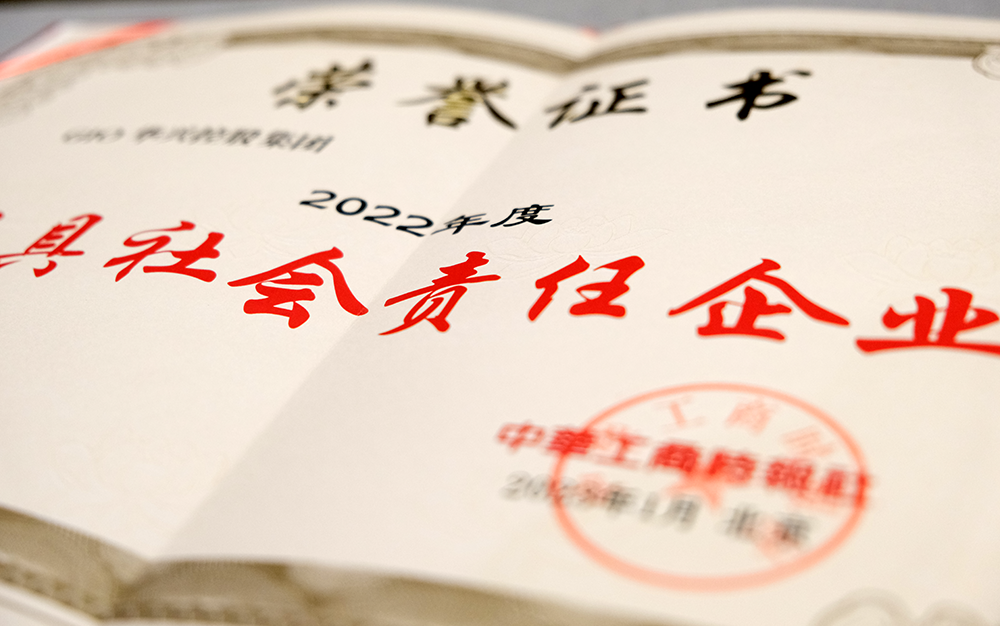 荣誉证书
华兴控股集团
2022年度
具社会责任企业
中华工商时报社
2023年1月 北京
工商